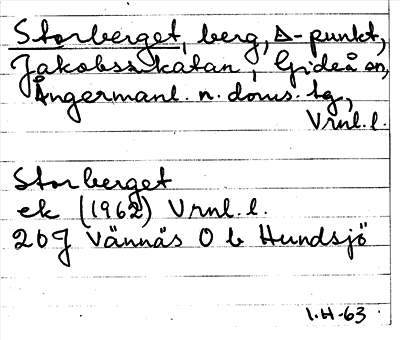 Storberget, berg, Δ-punkt,
Jakobsskatan, Gideå sn,
Ångermanl. n. doms. tg,
Vrnl. l.
Storberget
ek (1962) Vrnl. l.
20J Vännäs O b Hundsjö
I.H-63